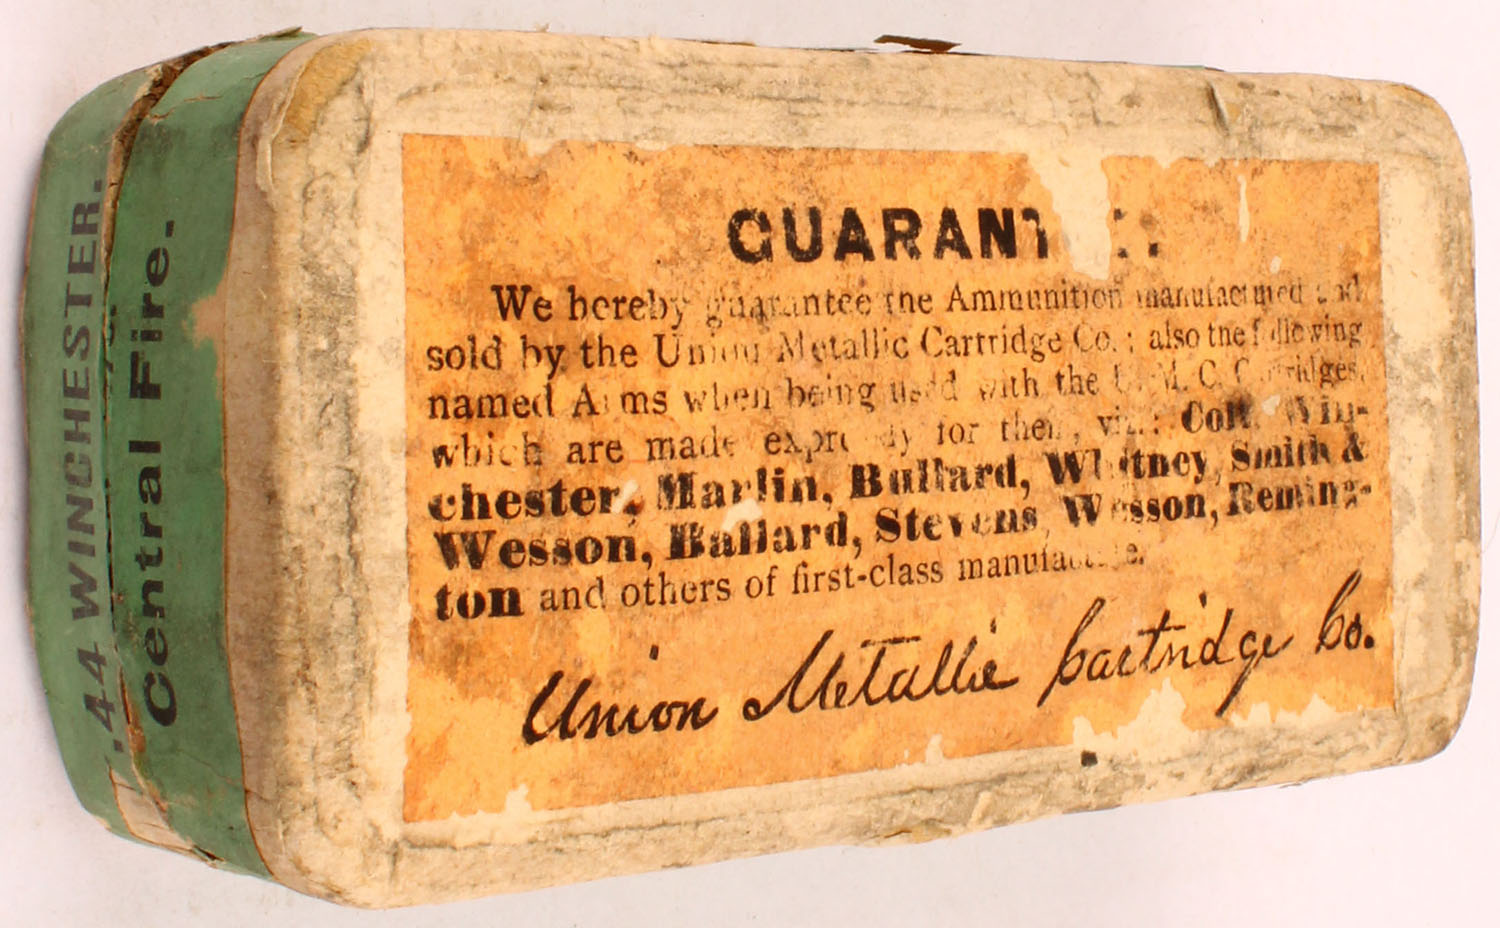 GUARANTEE.
We hereby guarantee the Ammunition manufactured and
sold by the Union Metallic Cartridge Co.; also the following
named Arms when being used with the U. M. C. Cartridges,
which are made expressly for them, viz.: Colt, Win-
chester, Marlin, Bullard, Whitney, Smith &
Wesson, Ballard, Stevens, Wesson, Reming-
ton and others of first-class manufacture.
Union Metallic Cartridge Co.
.44 WINCHESTER.
Central Fire.